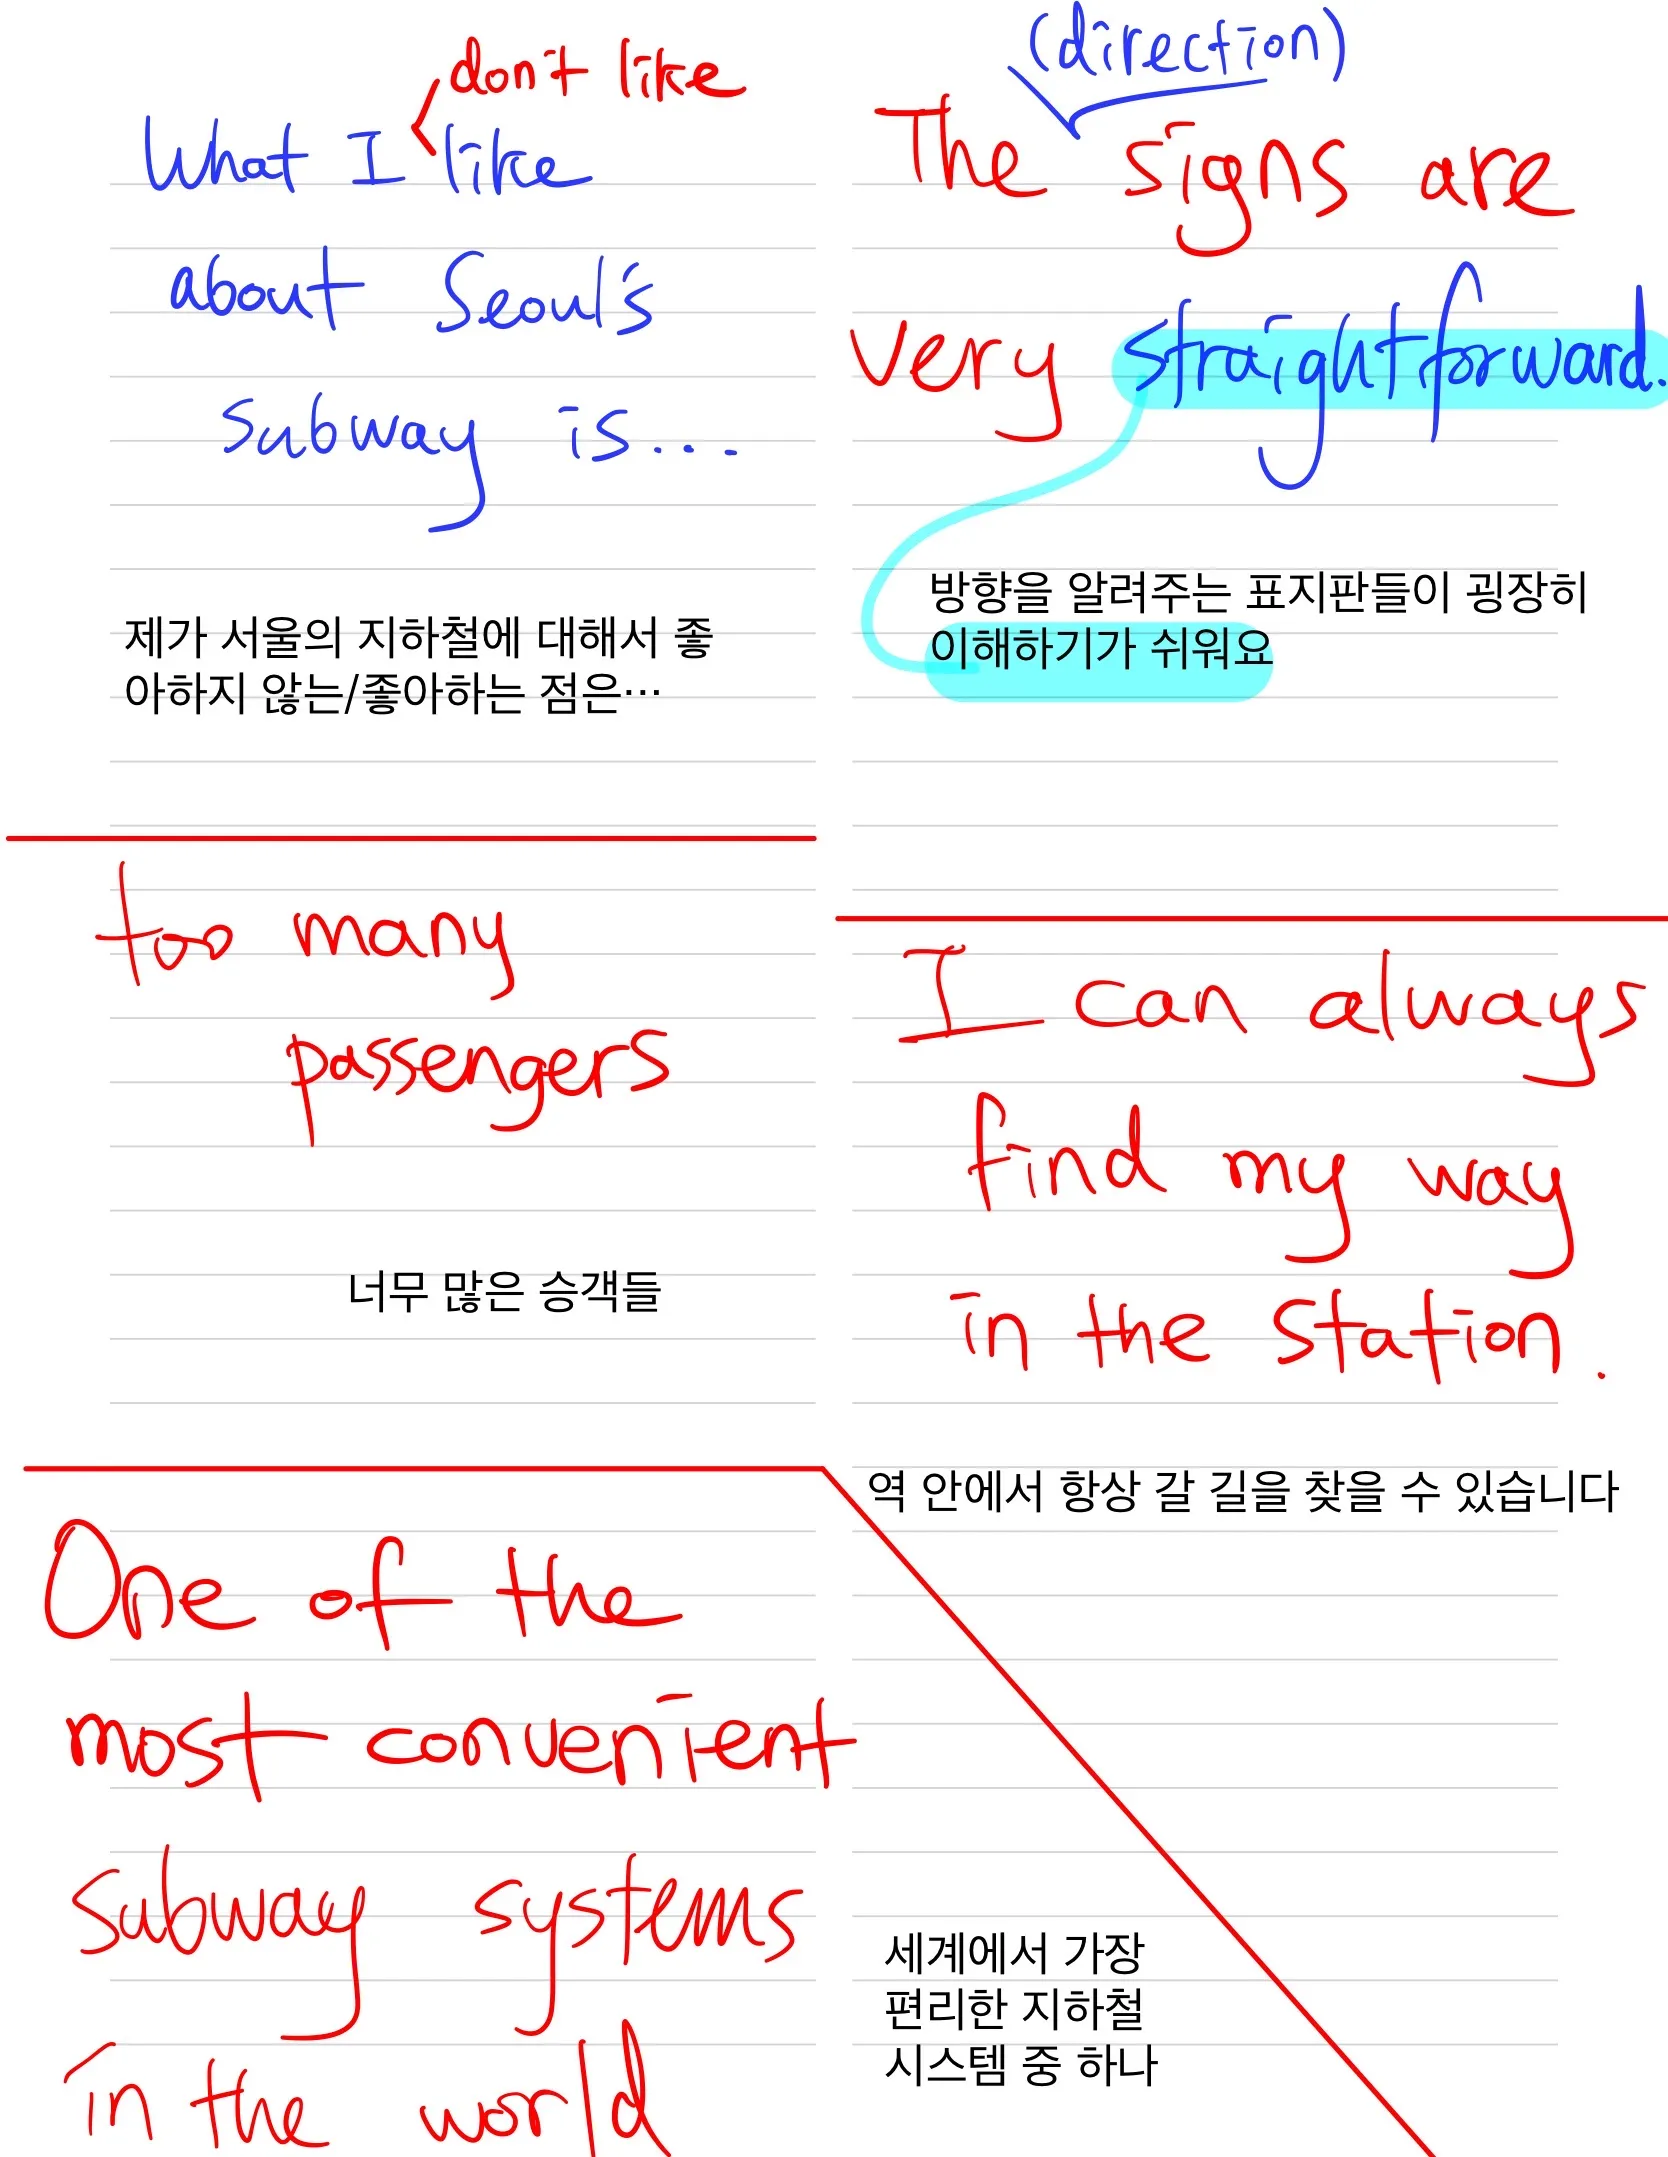 don't like
What I like
about Seoul's
subway is...
제가 서울의 지하철에 대해서 좋
아하지 않는/좋아하는 점은…
too many
passengers
너무 많은 승객들
One of the
most convenient
subway systems
in the world
세계에서 가장
편리한 지하철
시스템 중 하나
(direction)
The signs are
very straightforward.
방향을 알려주는 표지판들이 굉장히
이해하기가 쉬워요
I can always
find my way
in the station.
역 안에서 항상 갈 길을 찾을 수 있습니다